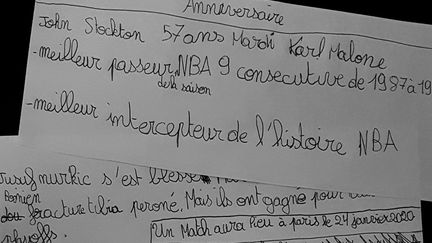 Anniversaire
John Stockton 57ans Mardi Karl Malone
-meilleur passeur NBA 9 consecutive de 1987 à 19
de la saison
-meilleur intercepteur de l'histoire NBA
Jusuf nurkic s'est blessé
fracture tibia peroné. Mais ils ont gagné pour
Un Match aura lieu à paris le 24 janvier 2020
playoffs.